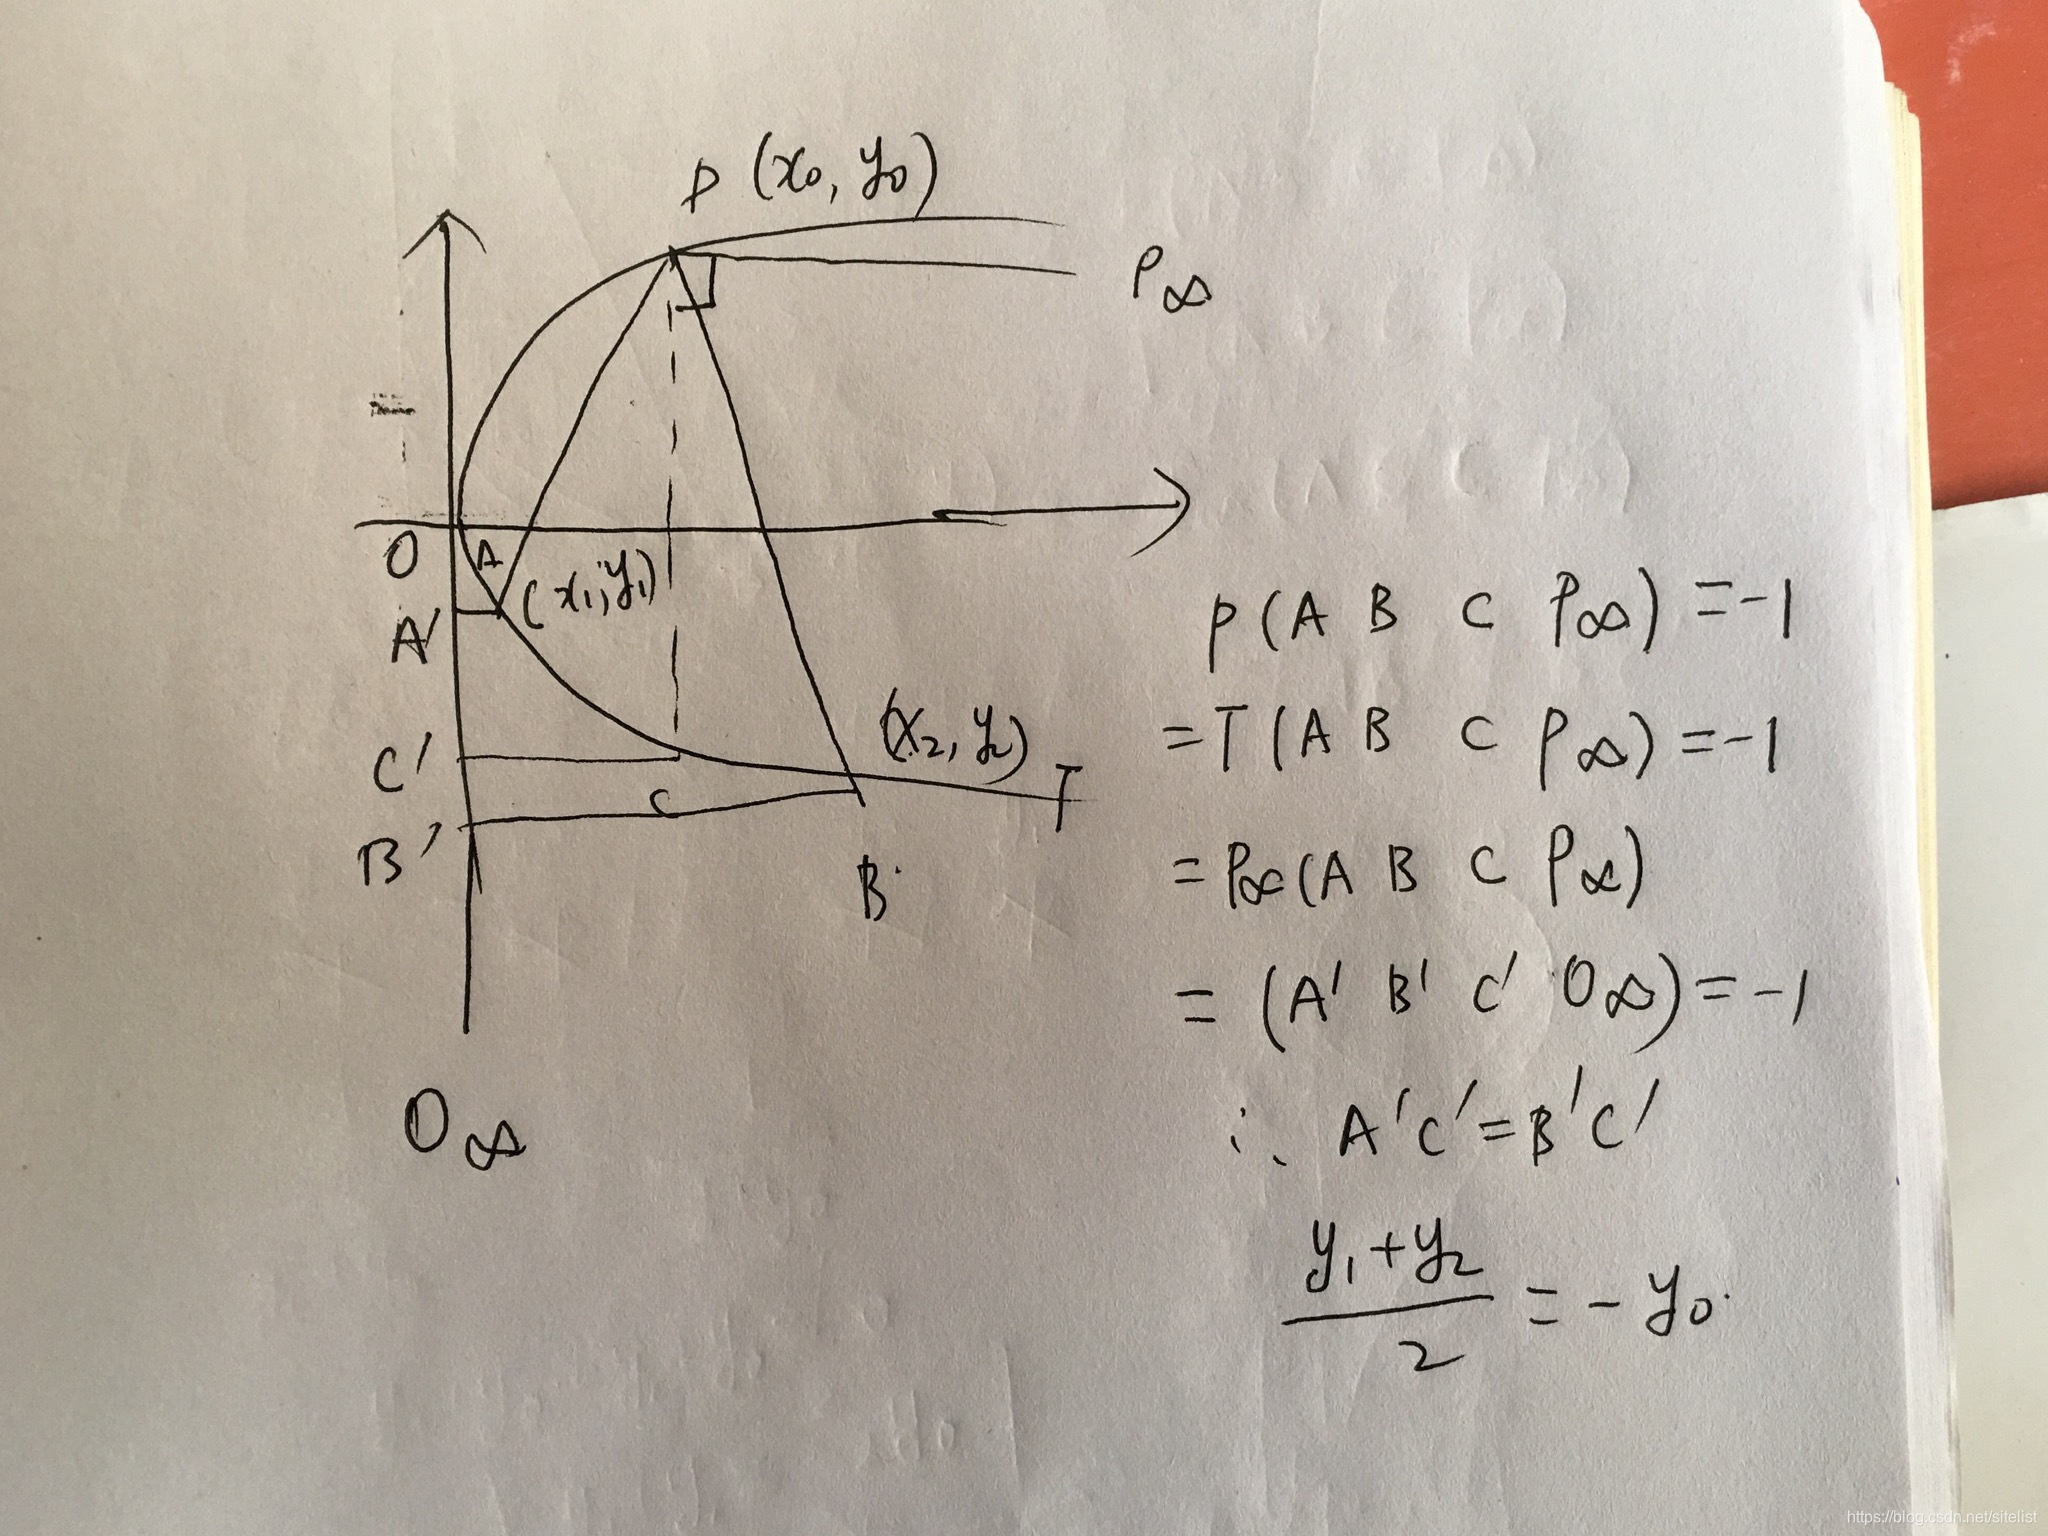 P (x₀, y₀)
P∞
O
A
(x₁, y₁)
A′
C′
C
(x₂, y₂)
T
B′
B
O∞
P ( A B C P∞ ) = -1
= T ( A B C P∞ ) = -1
= P∞ ( A B C P∞ )
= ( A′ B′ C′ O∞ ) = -1
∴ A′C′ = B′C′
y₁ + y₂
2
= - y₀.
https://blog.csdn.net/sitelist